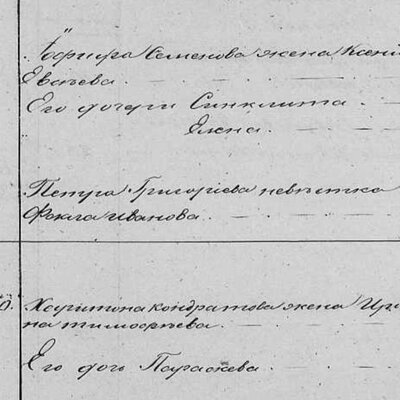 "
Порфира Семенова жена Ксені
Евлѣева
Его дочери Синклита
Елена
Петра Григорiева невѣстка
Фекла Иванова
Харитона Кондратова жена Ири
на Тимофѣева
Его доч Параскева